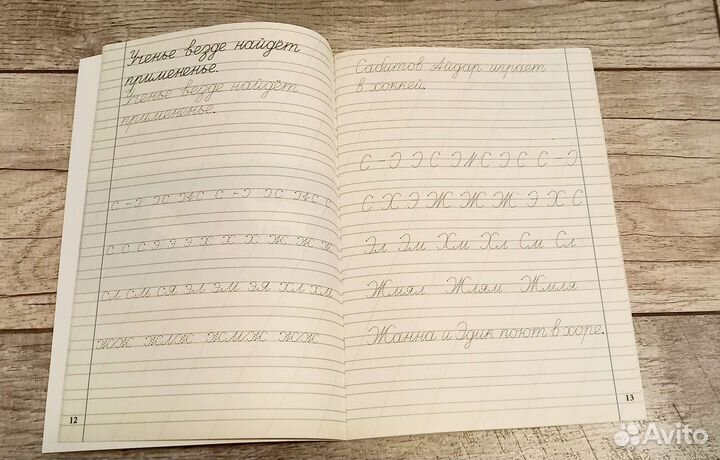 Ученье везде найдёт
примененье.
Ученье везде найдёт
примененье.
С - Э ЭС ЭИС С - Э ЭС ЭИС С
С С С Э Э Э Х Х Х Ж Ж Ж
Сл См Ся Эл Эм Эя Хл Хм
ЖЖ ЖЖ
12
Сабитов Айдар играет
в хоккей.
С - Э Э С Э И С Э С С - Э
С Х Э Ж Ж Ж Э Х С
Эл Эм Хм Хл См Сл
Жмял Жлям Жмля
Жанна и Эдик поют в хоре.
13
Avito